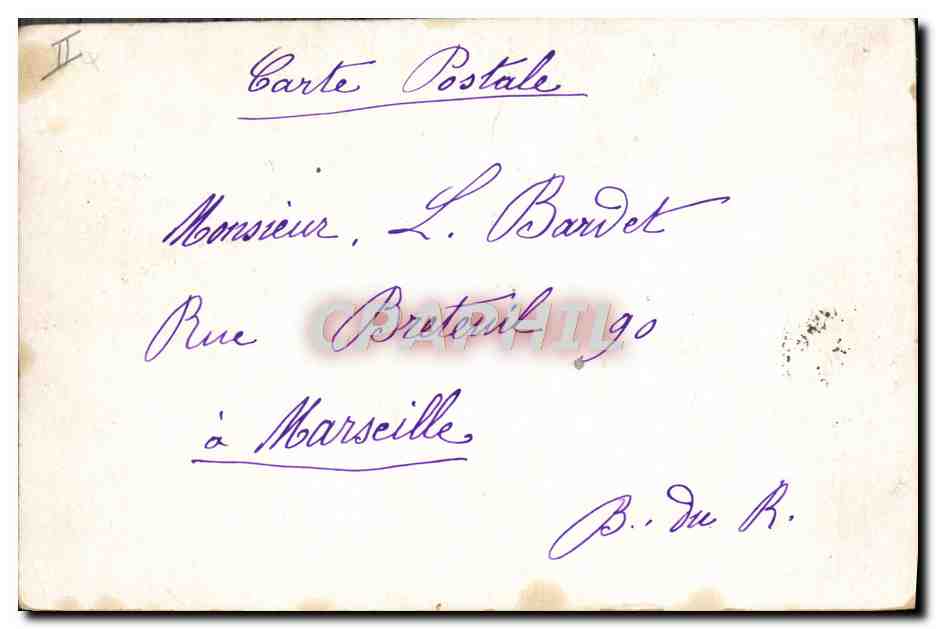 II
Carte Postale
Monsieur. L. Bardet
Rue Breteuil 90
CPAPHIL
à Marseille
B. du R.